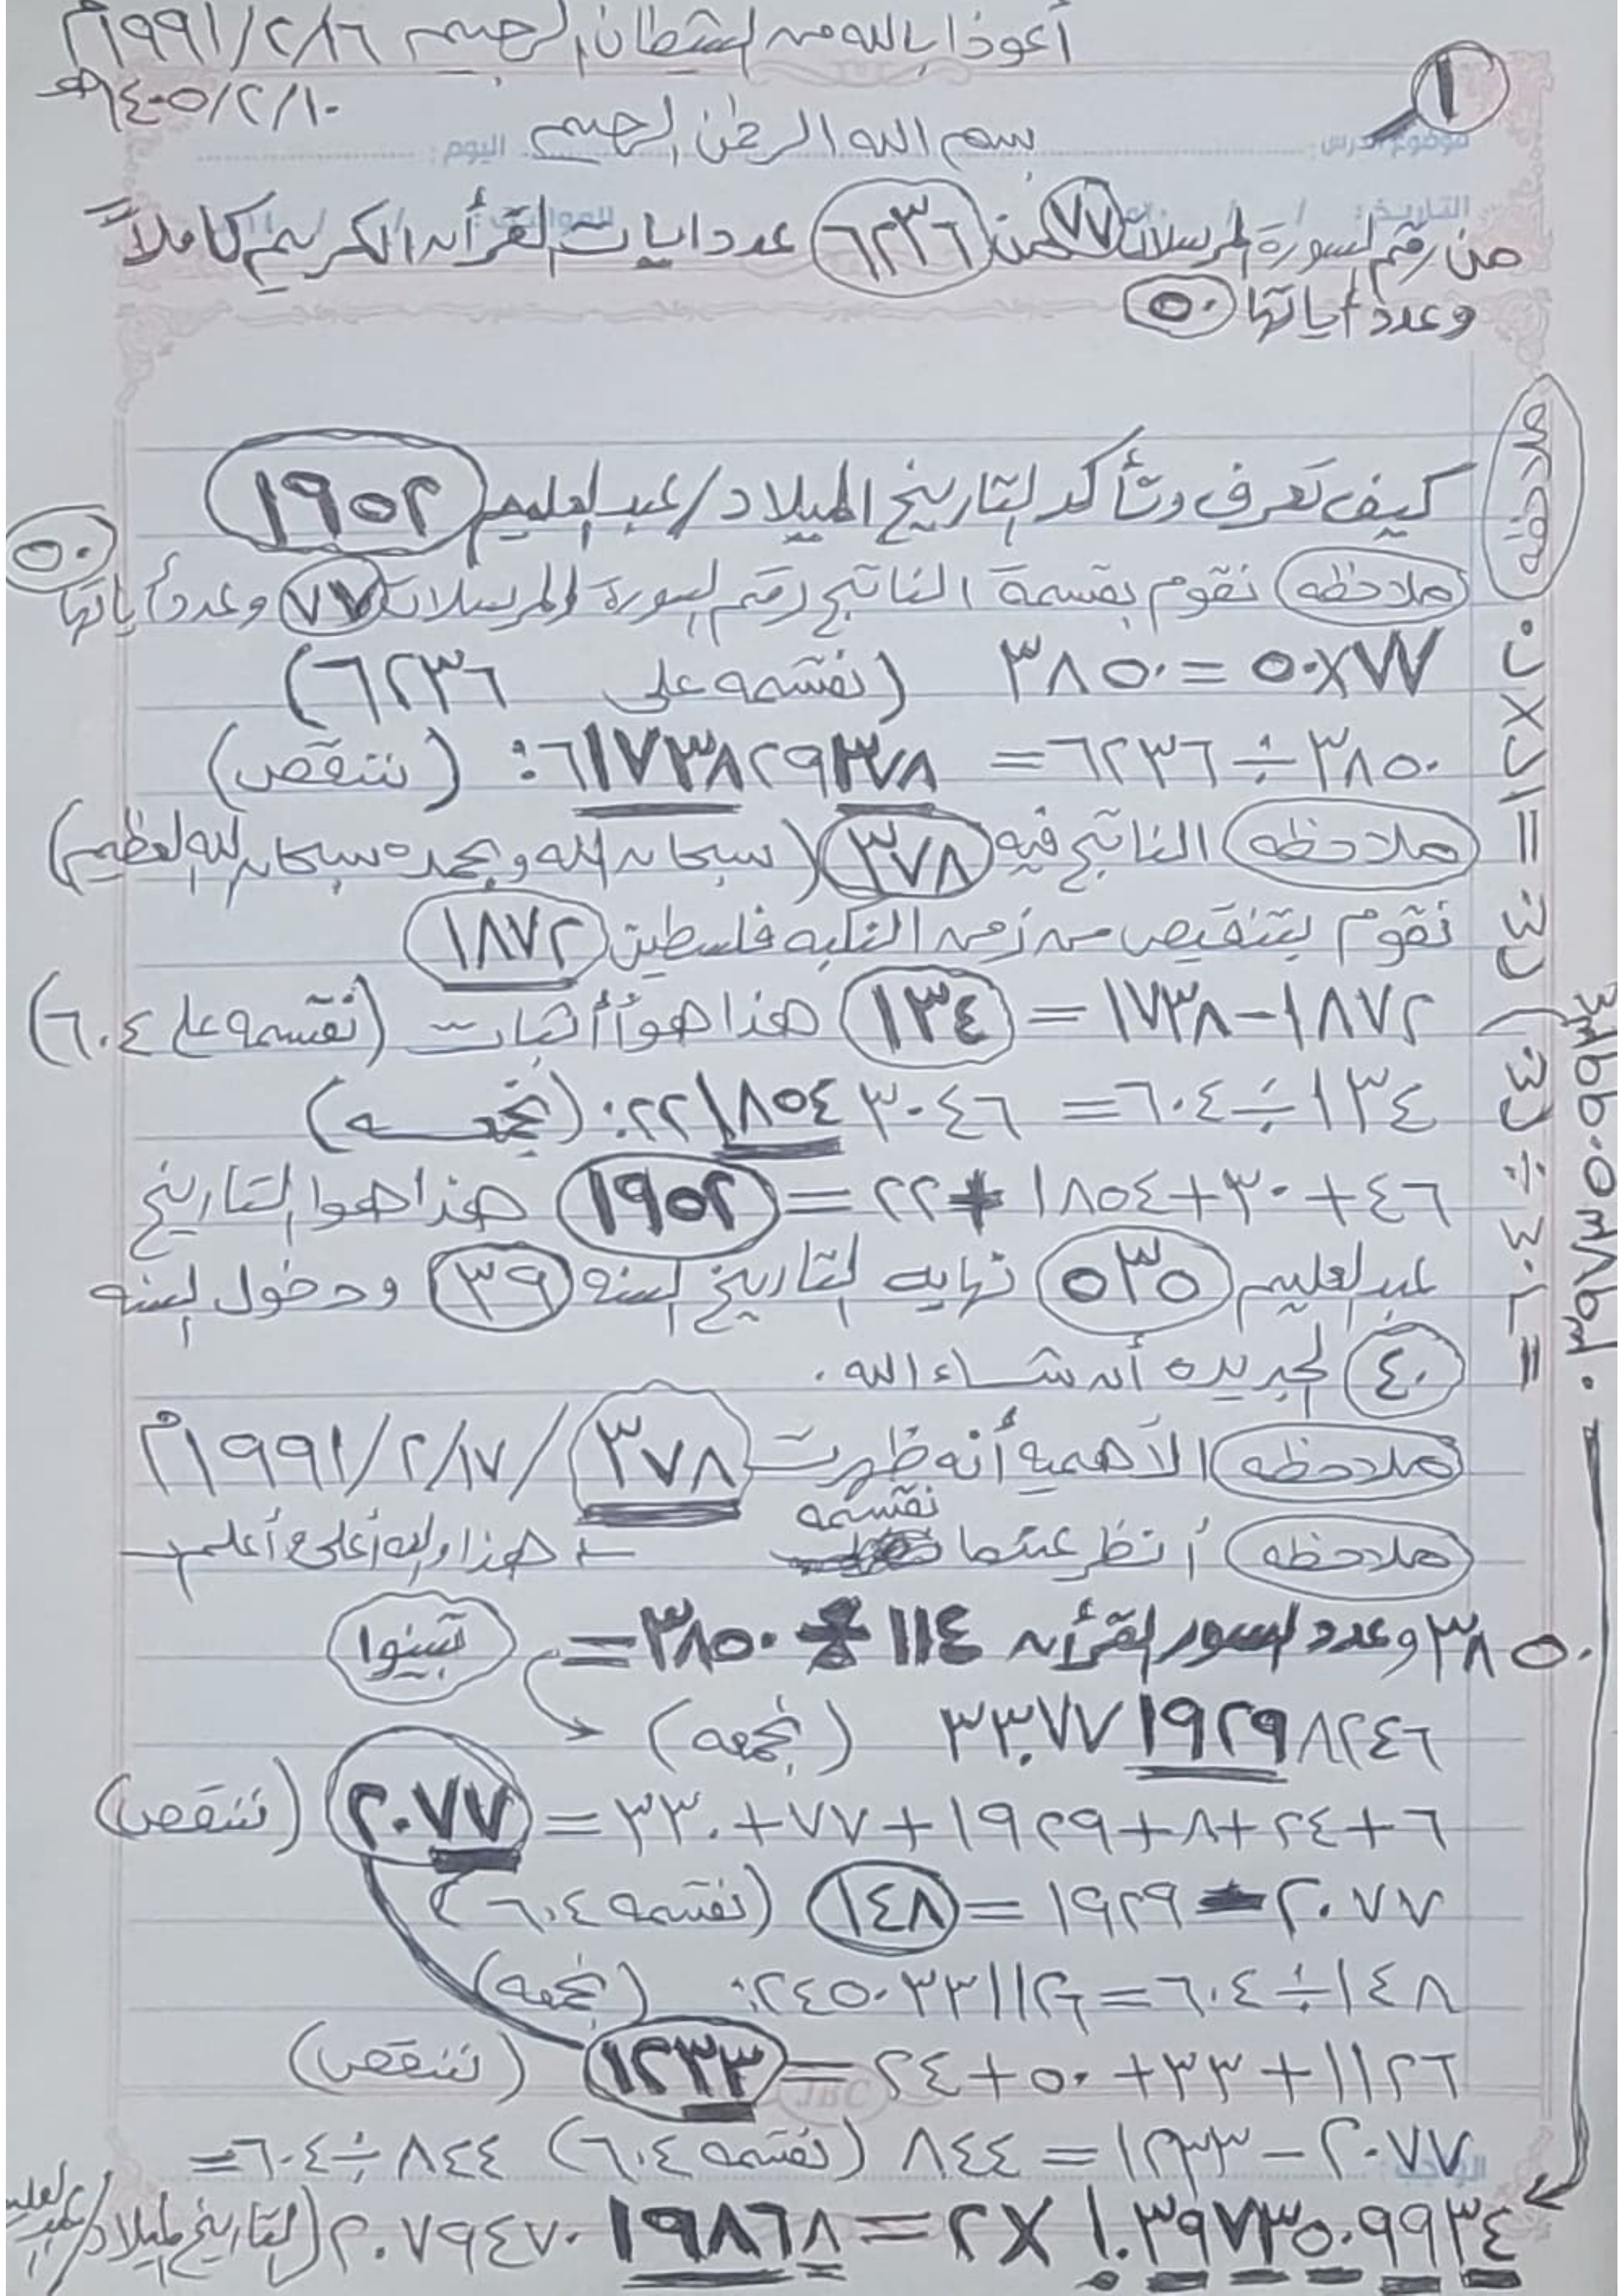 أعوذ بالله من الشيطان الرجيم ١٩٩١/٢/١٦م
١
١٤٠٥/٢/١٠هـ
بسم الله الرحمن الرحيم
موضوع الدرس: اليوم:
التاريخ: / /
من رقم السورة المرسلات ٧٧ ٦٢٣٦ عدد ايات القرأن الكريم كاملاً
وعدد أياتها ٥٠
كيف تعرف وتأكد التاريخ الميلاد/عبد العليم ١٩٥٢
ملاحظه نقوم بقسمة الناتج رقم السورة المرسلات ٧٧ وعدد أياتها ٥٠
٧٧×٥٠=٣٨٥٠ (نقسمه على ٦٢٣٦)
٣٨٥٠÷٦٢٣٦= ٦١٧٣٨٢٩٣٧٨: (ننقص)
ملاحظه الناتج فيه ٣٧٨ (سبحان الله وبحمده سبحان الله العظيم)
نقوم بتنقيص من زمن النكبه فلسطين ١٨٧٢
١٨٧٢-١٧٣٨= ١٣٤ هذا هو أثبات (نقسمه على ٦٠٤)
١٣٤÷٦٠٤= ٢٢١٨٥٤٣٠٤٦: (نجمعه)
٤٦+٣٠+١٨٥٤+٢٢= ١٩٥٢ هذا هوا التاريخ
عبد العليم ٥٣٥ نهايه التاريخ السنه ٣٩ ودخول السنه
٤٠ الجديده أن شاء الله.
ملاحظه الأهميه أنه ظهرت ٣٧٨ /١٩٩١/٢/١٧م
ملاحظه أنظر عندما نقسمه هذا والله أعلى وأعلم
٣٨٥٠ وعدد السور القرأن ١١٤ ÷ ٣٨٥٠= تبينوا
٣٣٠٧٧١٩٢٩٨٢٤٦ (نجمعه)
٦+٢٤+٨+١٩٢٩+٧٧+٣٣٠= ٢٠٧٧ (ننقص)
٢٠٧٧-١٩٢٩= ١٤٨ (نقسمه ٦٠٤)
١٤٨÷٦٠٤=٢٤٥٠٣٣١١٢٦: (نجمعه)
١١٢٦+٣٣+٥٠+٢٤= ١٢٣٣ (ننقص)
الواجب:
٢٠٧٧-١٢٣٣= ٨٤٤ (نقسمه ٦٠٤) ٨٤٤÷٦٠٤=
١.٣٩٧٣٥٠٩٩٣٤ ×٢= ٢.٧٩٤٧٠١٩٨٦٨ (التاريخ الميلاد/عبد العليم
ملاحظه